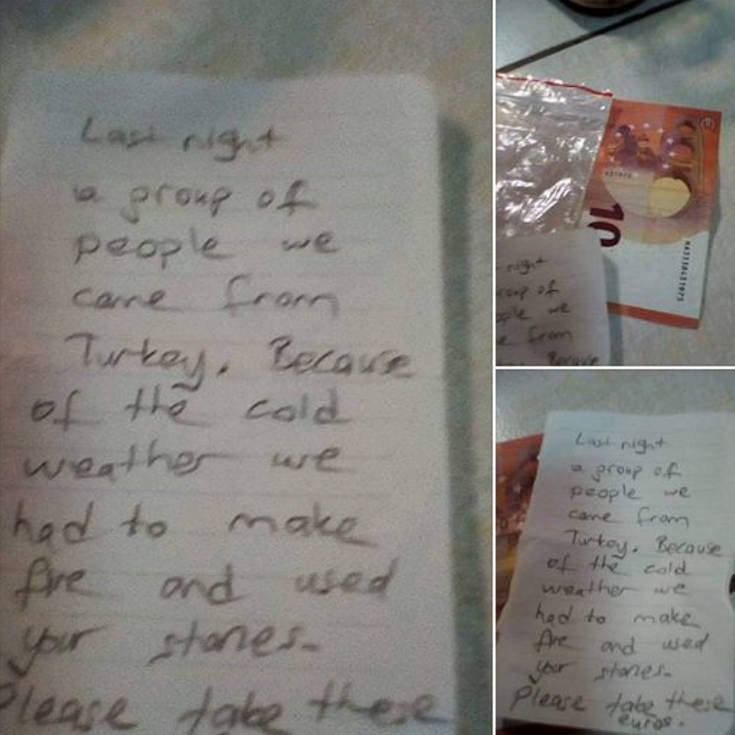 Last night
a group of
people we
came from
Turkey. Because
of the cold
weather we
had to make
fire and used
your stones.
Please take these
10
night
people we
from
Because
Last night
a group of
people we
came from
Turkey. Because
of the cold
weather we
had to make
fire and used
your stones.
Please take these
euros.